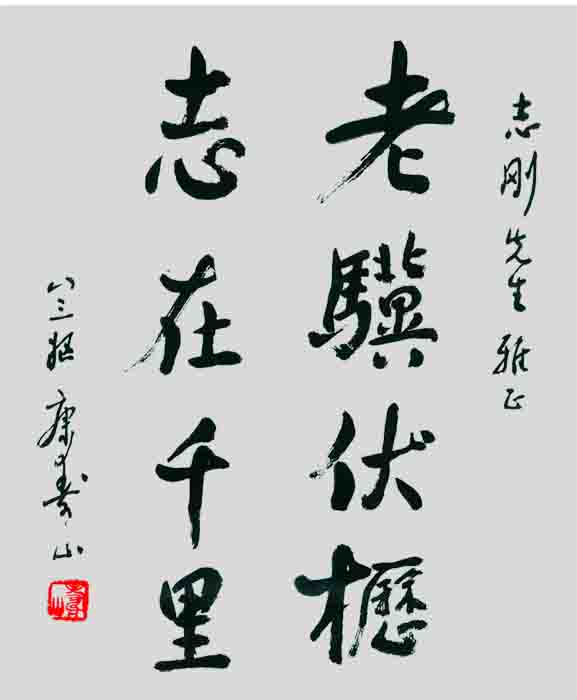 志刚先生雅正
老驥伏櫪
志在千里
八三 康寿山